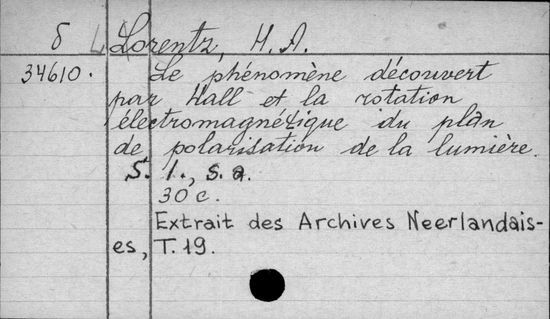 δ Lorentz, H. A.
34610. Le phénomène découvert
par Hall et la rotation
électromagnétique du plan
de polarisation de la lumière.
S. l., s. a.
30 c.
Extrait des Archives Neerlandais-
es, T. 19.